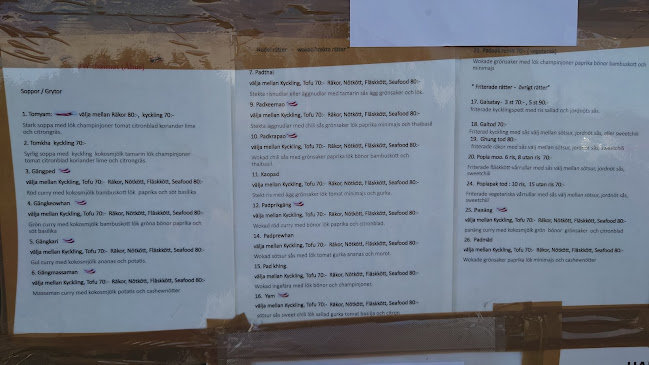 Soppor / Grytor
1. Tomyam: välja mellan Räkor 80:-, kyckling 70:-
Stark soppa med lök champinjoner tomat citronblad koriander lime
och citrongräs.
2. Tomkha kyckling 70:-
Syrlig soppa med kyckling kokosmjölk tamarin lök champinjoner
tomat citronblad koriander lime och citrongräs.
3. Gängped
välja mellan Kyckling, Tofu 70:- Räkor, Nötkött, Fläskkött, Seafood 80:-
Röd curry med kokosmjölk bambuskott lök paprika och söt basilika
4. Gängkeowhan
välja mellan Kyckling, Tofu 70:- Räkor, Nötkött, Fläskkött, Seafood 80:-
Grön curry med kokosmjölk bambuskott lök gröna bönor paprika och
söt basilika
5. Gängkari
välja mellan Kyckling, Tofu 70:- Räkor, Nötkött, Fläskkött, Seafood 80:-
Gul curry med kokosmjölk ananas och potatis.
6. Gängmassaman
välja mellan Kyckling, Tofu 70:- Räkor, Nötkött, Fläskkött, Seafood 80:-
Massaman curry med kokosmjölk potatis och cashewnötter
7. Padthai
välja mellan Kyckling, Tofu 70:- Räkor, Nötkött, Fläskkött, Seafood 80:-
Stekta risnudlar eller äggnudlar med tamarin sås ägg grönsaker och lök.
9. Padkeemao
välja mellan Kyckling, Tofu 70:- Räkor, Nötkött, Fläskkött, Seafood 80:-
Stekta äggnudlar med chili sås grönsaker lök paprika minimajs och thaibasil
10. Padkrapao
välja mellan Kyckling, Tofu 70:- Räkor, Nötkött, Fläskkött, Seafood 80:-
Wokad chili sås med grönsaker paprika lök bönor bambuskott och
thaibasil.
11. Kaopad
välja mellan Kyckling, Tofu 70:- Räkor, Nötkött, Fläskkött, Seafood 80:-
Stekt ris med ägg grönsaker lök tomat minimajs och gurka.
12. Padprikgäng
välja mellan Kyckling, Tofu 70:- Räkor, Nötkött, Fläskkött, Seafood 80:-
Wokad röd curry med bönor lök paprika och citronblad.
14. Padprewhan
välja mellan Kyckling, Tofu 70:- Räkor, Nötkött, Fläskkött, Seafood 80:-
Wokad sötsur sås med lök tomat gurka ananas och morot.
15. Pad khing
välja mellan Kyckling, Tofu 70:- Räkor, Nötkött, Fläskkött, Seafood 80:-
Wokad ingefära med lök bönor och champinjoner.
16. Yam
välja mellan Kyckling, Tofu 70:- Räkor, Nötkött, Fläskkött, Seafood 80:-
sötsur sås sweet chili lök sallad gurka tomat basilja och citron
Wokade grönsaker med lök champinjoner paprika bönor bambuskott och
minimajs
" Friterade rätter - övrigt rätter"
17. Gaisatay- 2 st 70:-, 5 st 90:-
friterade kycklingspett med ris sallad och jordnöts sås.
18. Gaitod 70:-
Friterad kyckling med sås välj mellan sötsur, jordnöt sås, eller sweetchili
19. Ghung tod 80:-
friterade räkor med sås välj mellan sötsur, jordnöt sås, sweetchili
20. Popia moo. 6 ris, 8 utan ris 70:-
Friterade fläskkött vårrullar med sås välj mellan sötsur, jordnöt sås,
sweetchili
24. Popiapak tod : 10 ris, 15 utan ris 70:-
Friterade vegetariska vårrullar med sås välj mellan sötsur, jordnöt sås,
sweetchili
25. Panäng
välja mellan Kyckling, Tofu 70:- Räkor, Nötkött, Fläskkött, Seafood 80:-
panäng curry med kokosmjölk grön bönor grönsaker och citronblad
26. Padmåd
välja mellan Kyckling, Tofu 70:- Räkor, Nötkött, Fläskkött, Seafood 80:-
Wokade grönsaker paprika lök minimajs och cashewnötter